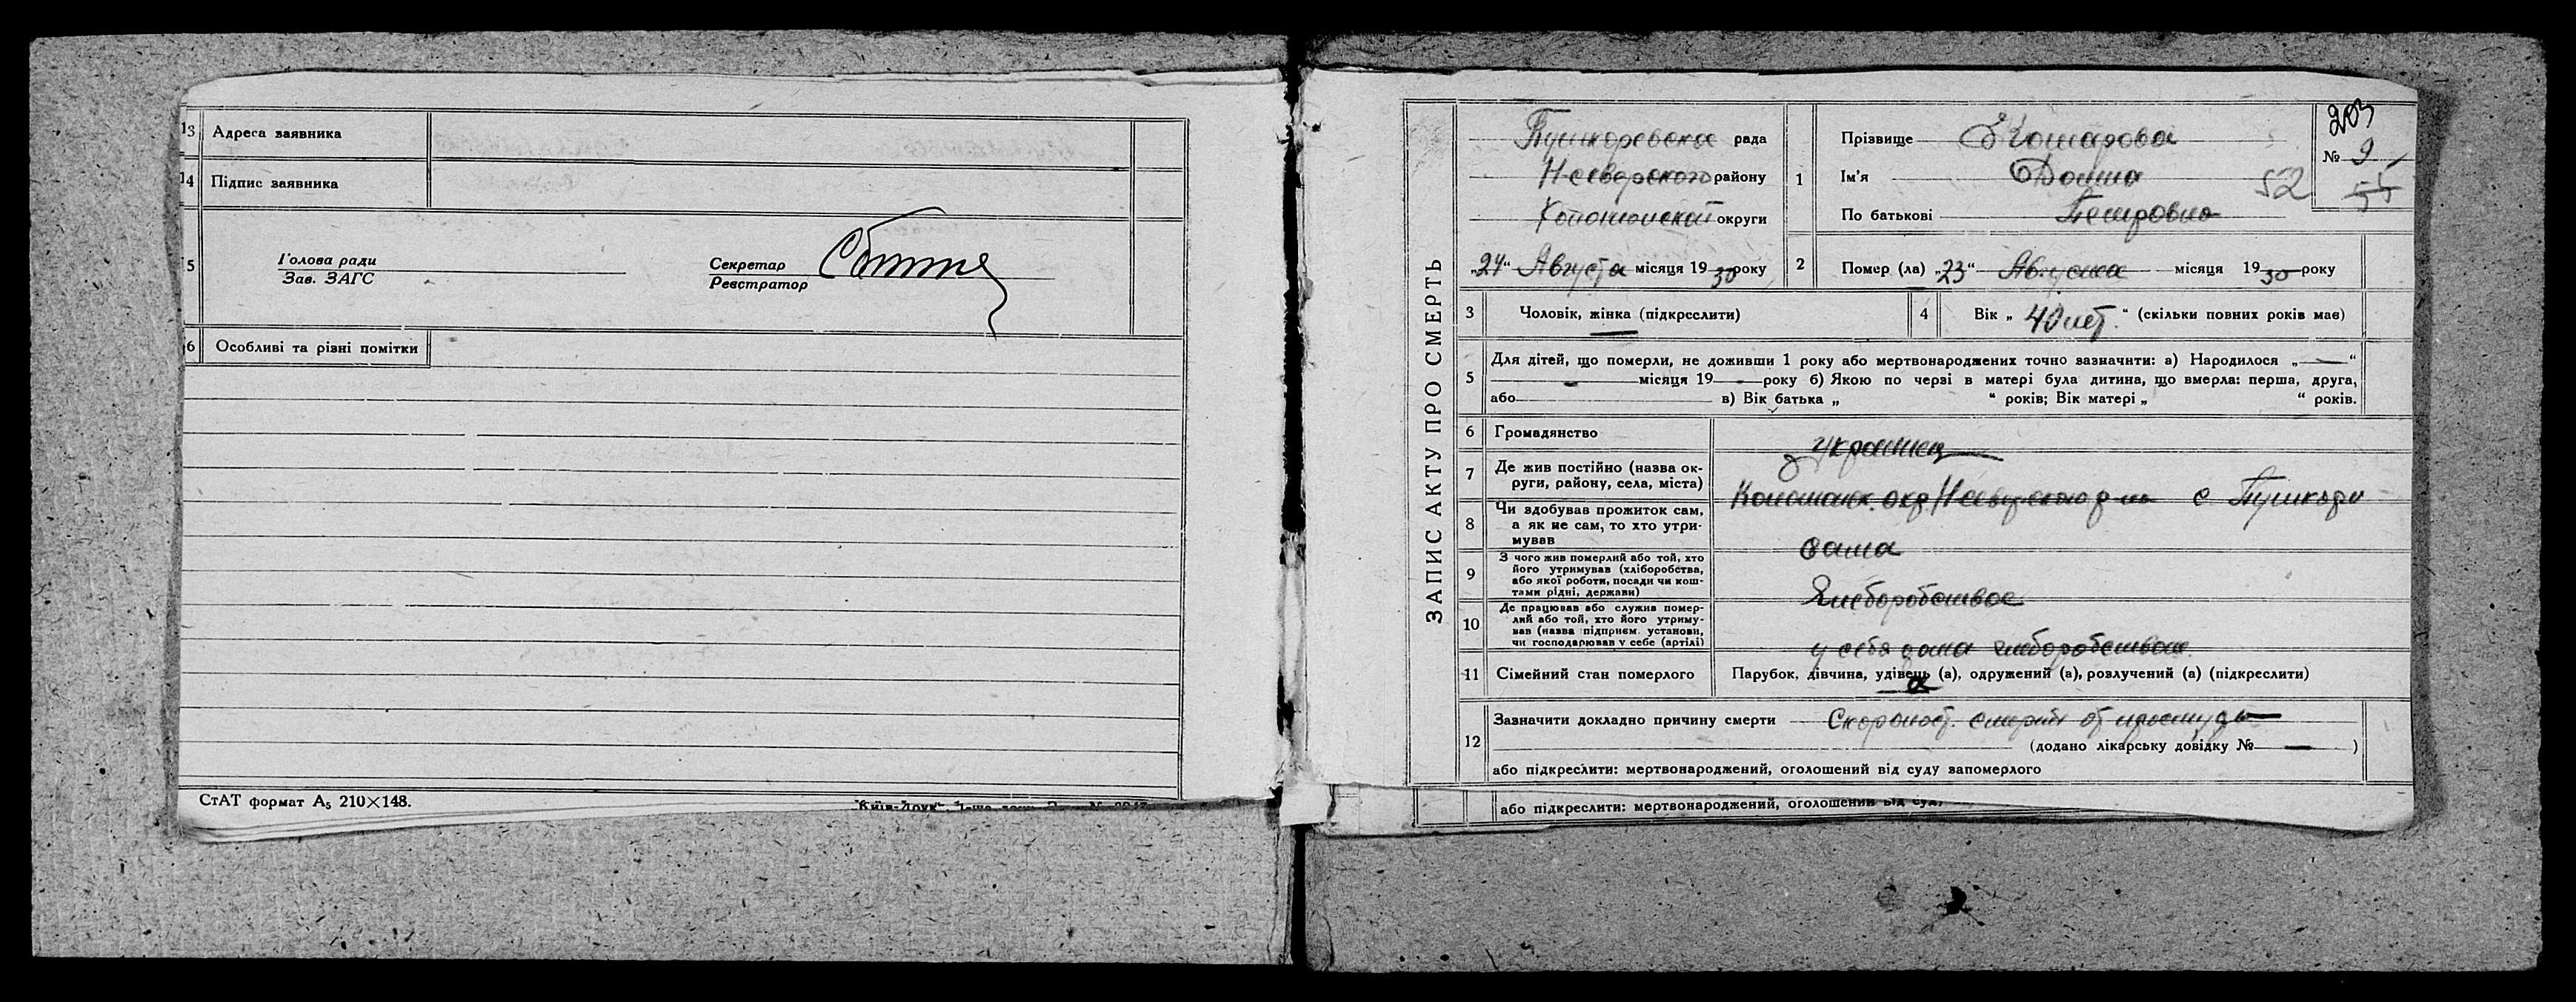 13 Адреса заявника
14 Підпис заявника
5 Голова ради
Зав. ЗАГС
Секретар
Реєстратор
6 Особливі та різні помітки
СтАТ формат А₅ 210×148.
ЗАПИС АКТУ ПРО СМЕРТЬ
203
№ 9
55
52
рада
району
округи
„24“ Августа місяця 1930 року
1 Прізвище
Ім'я
По батькові Петровна
2 Помер (ла) „23“ Августа місяця 1930 року
3 Чоловік, жінка (підкреслити)
4 Вік „ 40 лет. “ (скільки повних років має)
5 Для дітей, що померли, не доживши 1 року або мертвонароджених точно зазначити: а) Народилося „ — “
— місяця 19 — року б) Якою по черзі в матері була дитина, що вмерла: перша, друга,
або в) Вік батька „ “ років; Вік матері „ “ років.
6 Громадянство украинец
7 Де жив постійно (назва ок-
руги, району, села, міста)
окр. с
8 Чи здобував прожиток сам,
а як не сам, то хто утри-
мував
сама
9 З чого жив померлий або той, хто
його утримував (хліборобства,
або якої роботи, посади чи кош-
тами рідні, держави)
Хлеборобством
10 Де працював або служив помер-
лий або той, хто його утриму-
вав (назва підприєм. установи,
чи господарював у себе (артілі)
у себя дома хлеборобством
11 Сімейний стан померлого Парубок, дівчина, удівець (а), одружений (а), розлучений (а) (підкреслити)
а
12 Зазначити докладно причину смерти Скоропост. смерть от простуды
(додано лікарську довідку № — )
або підкреслити: мертвонароджений, оголошений від суду запомерлого
або підкреслити: мертвонароджений, оголошений від суду